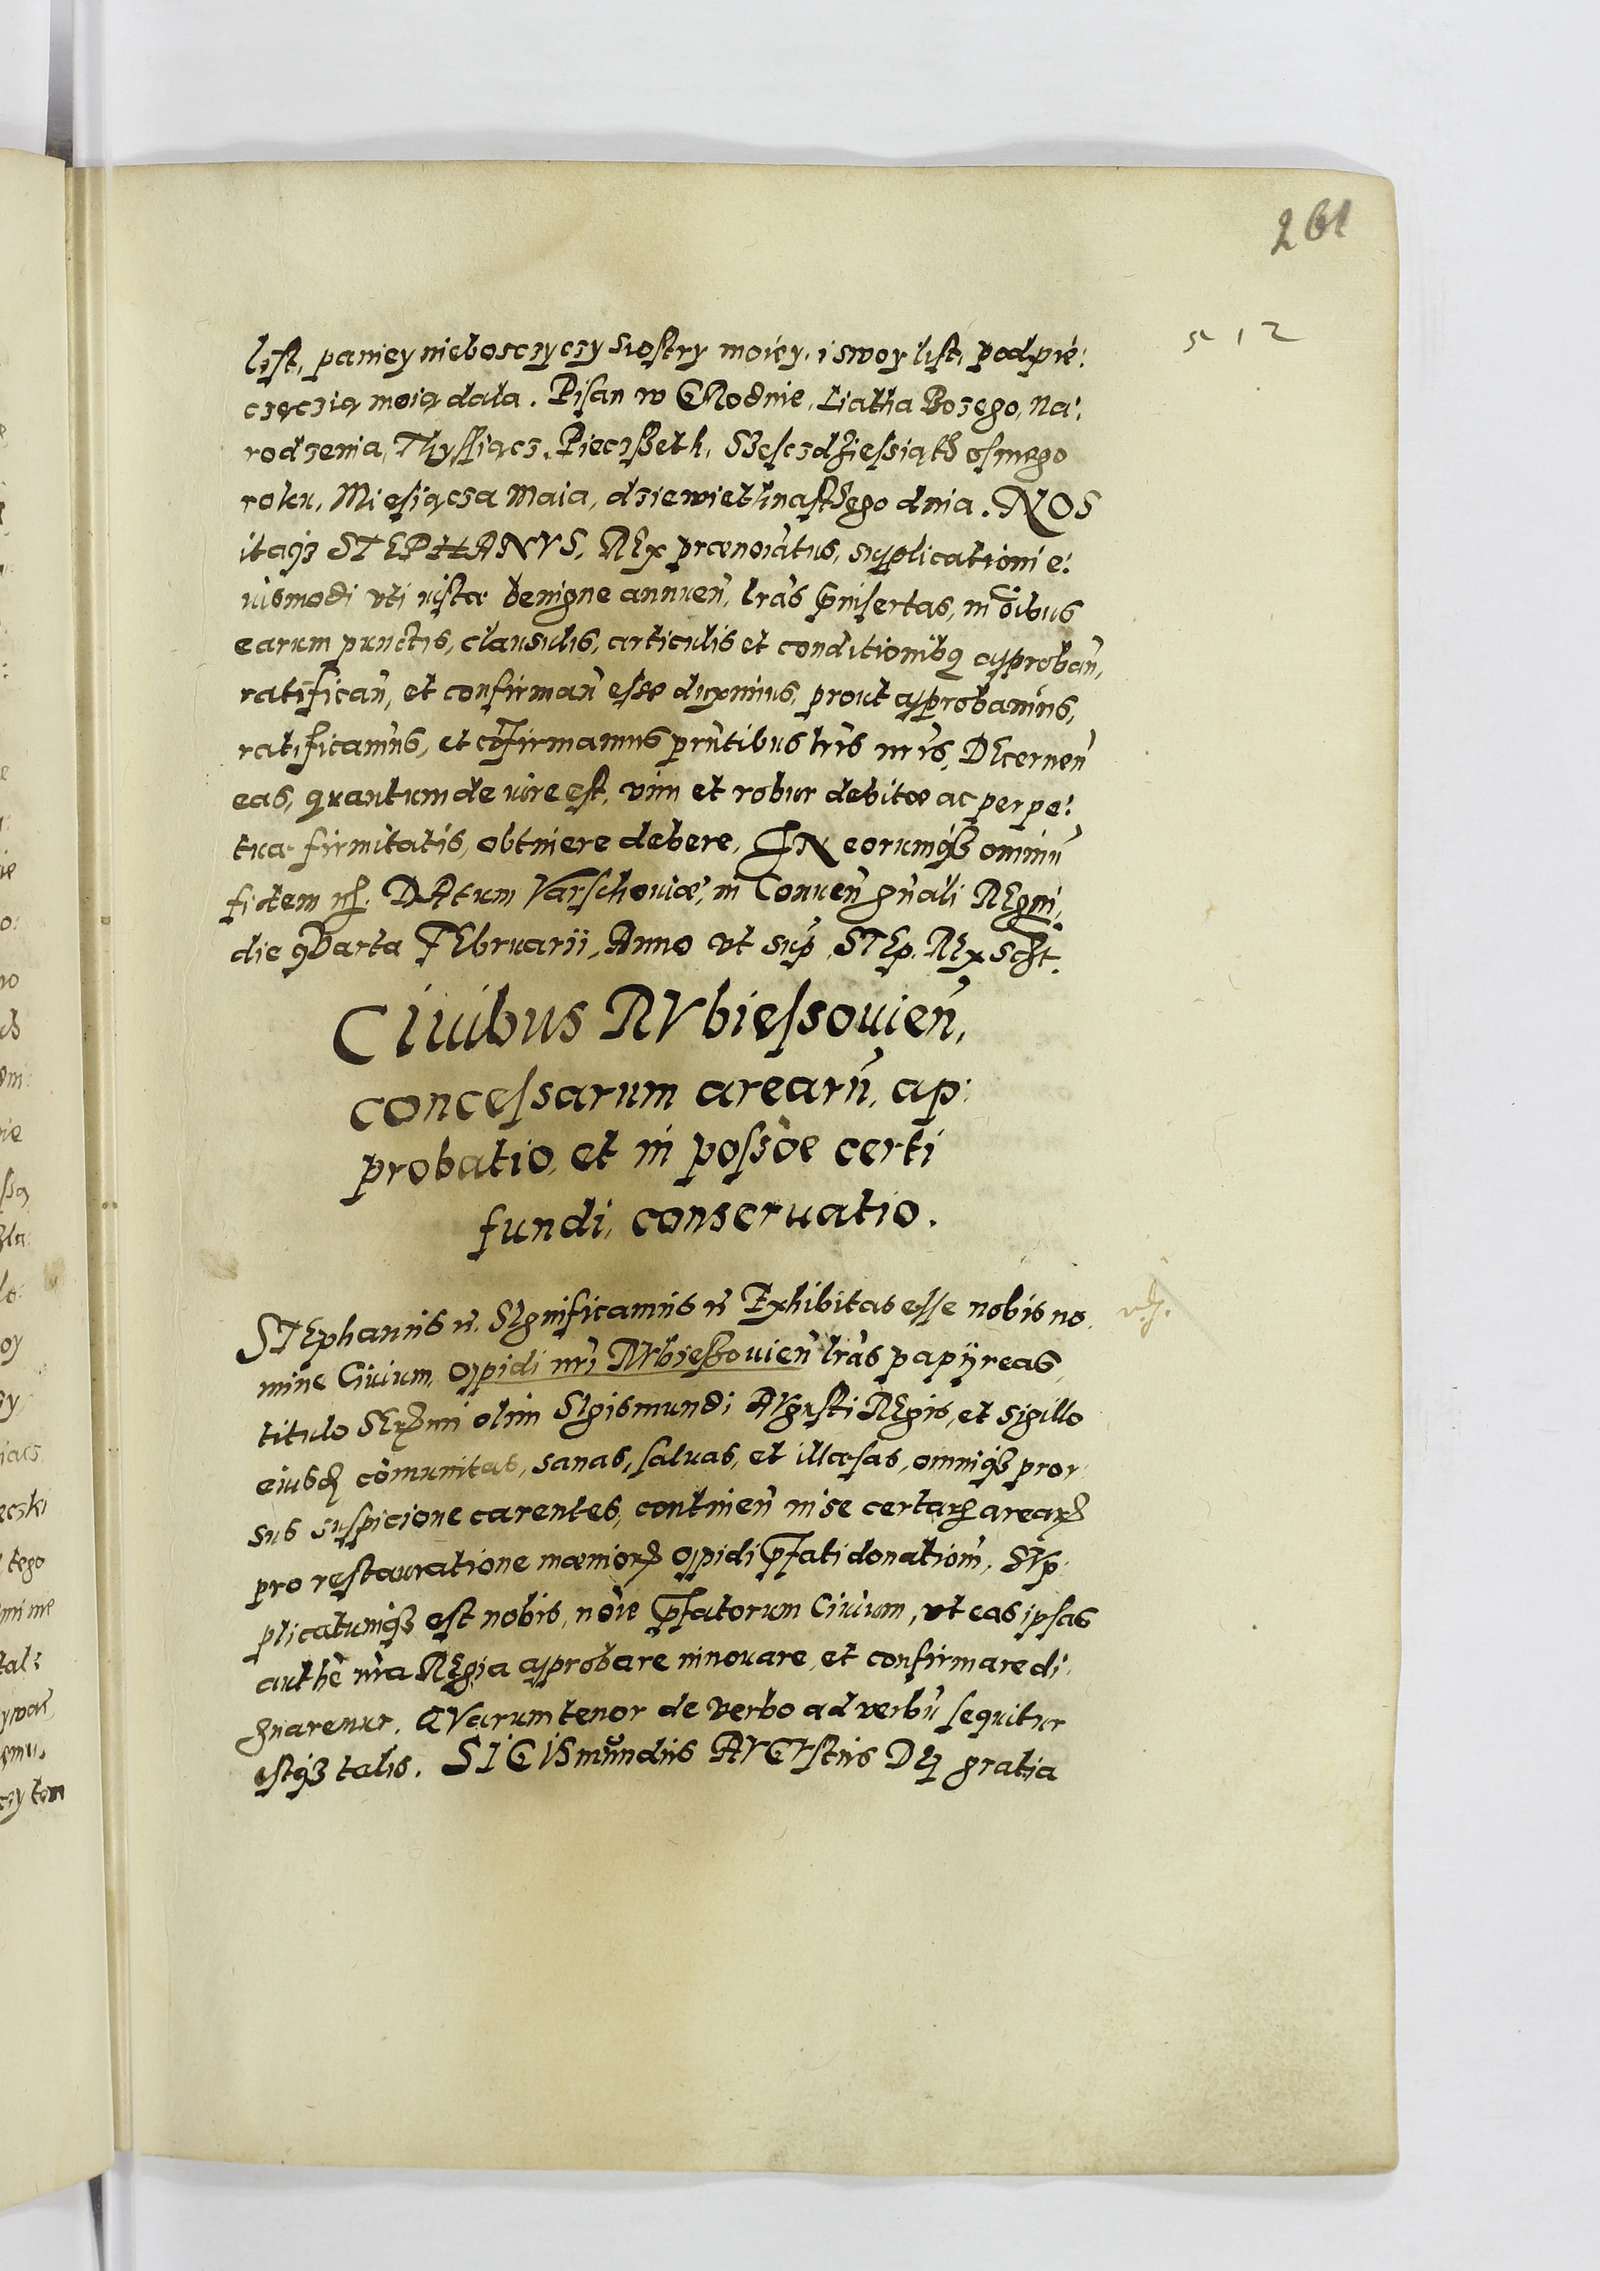 261
512
list, paniey niebosczyczy siostry moiéy, i swoy list, podpié:
częczią moią dala. Pisan w GRodnie, Liatha Bozego, Na:
rodzenia, Thyssiącz, Piecżseth, Szesczdziessiąth osmego
roku, Miesiącza Maia, dziewiethnasthego dnia. NOS
itaq₃ STEPHANVS, REx prænoiatus, supplicationi e:
iusmodi vti iustæ benigne annuen̄, lrās p̄insertas, in oībus
earum punctis, clausulis, articulis et conditionibq approban̄,
ratifican̄, et confirman̄ esse duximus, prout approbamus,
ratificamus, et cōfirmamus pr̄ntibus lrīs nr̄is, DEcernen̄
eas, quantum de iure est, vim et robur debitæ ac perpe:
tuæ firmitatis, obtinere debere, IN eorumq₃ omniū
fidem DAtum Varschouiæ, in Conuen̄ gn̄ali REgni,
die qVarta FEbruarii, Anno vt sup̄, STEp. REx scſt.
CIuibus RVbiessouien̄,
concessarum arearū, ap:
probatio, et in possōe certi
fundi, conseruatio.
STEphanus SIgnificamus Exhibitas esse nobis no
mine Ciuium, oppidi nr̄i RVbieszouien̄ lrās papijreas,
titulo SErmi olim SIgismundi AVgusti REgis, et sigillo
eiusdē cōmunitas, sanas, saluas, et illæsas, omniq₃ pror
sus suspicione carentes, continen̄ in se certarꝝ arearꝝ
pro restauratione mæniorꝝ oppidi p̄fati donationē, SVp:
plicatumq₃ est nobis, nōie p̄fatorum Ciuium, vt eas ipsas
authē nr̄a REgia approbare innouare, et confirmare di:
gnaremur. QVarum tenor de verbo ad verbū sequitur
estq₃ talis. SIGISmŭndus AVGVstus DEi gratia